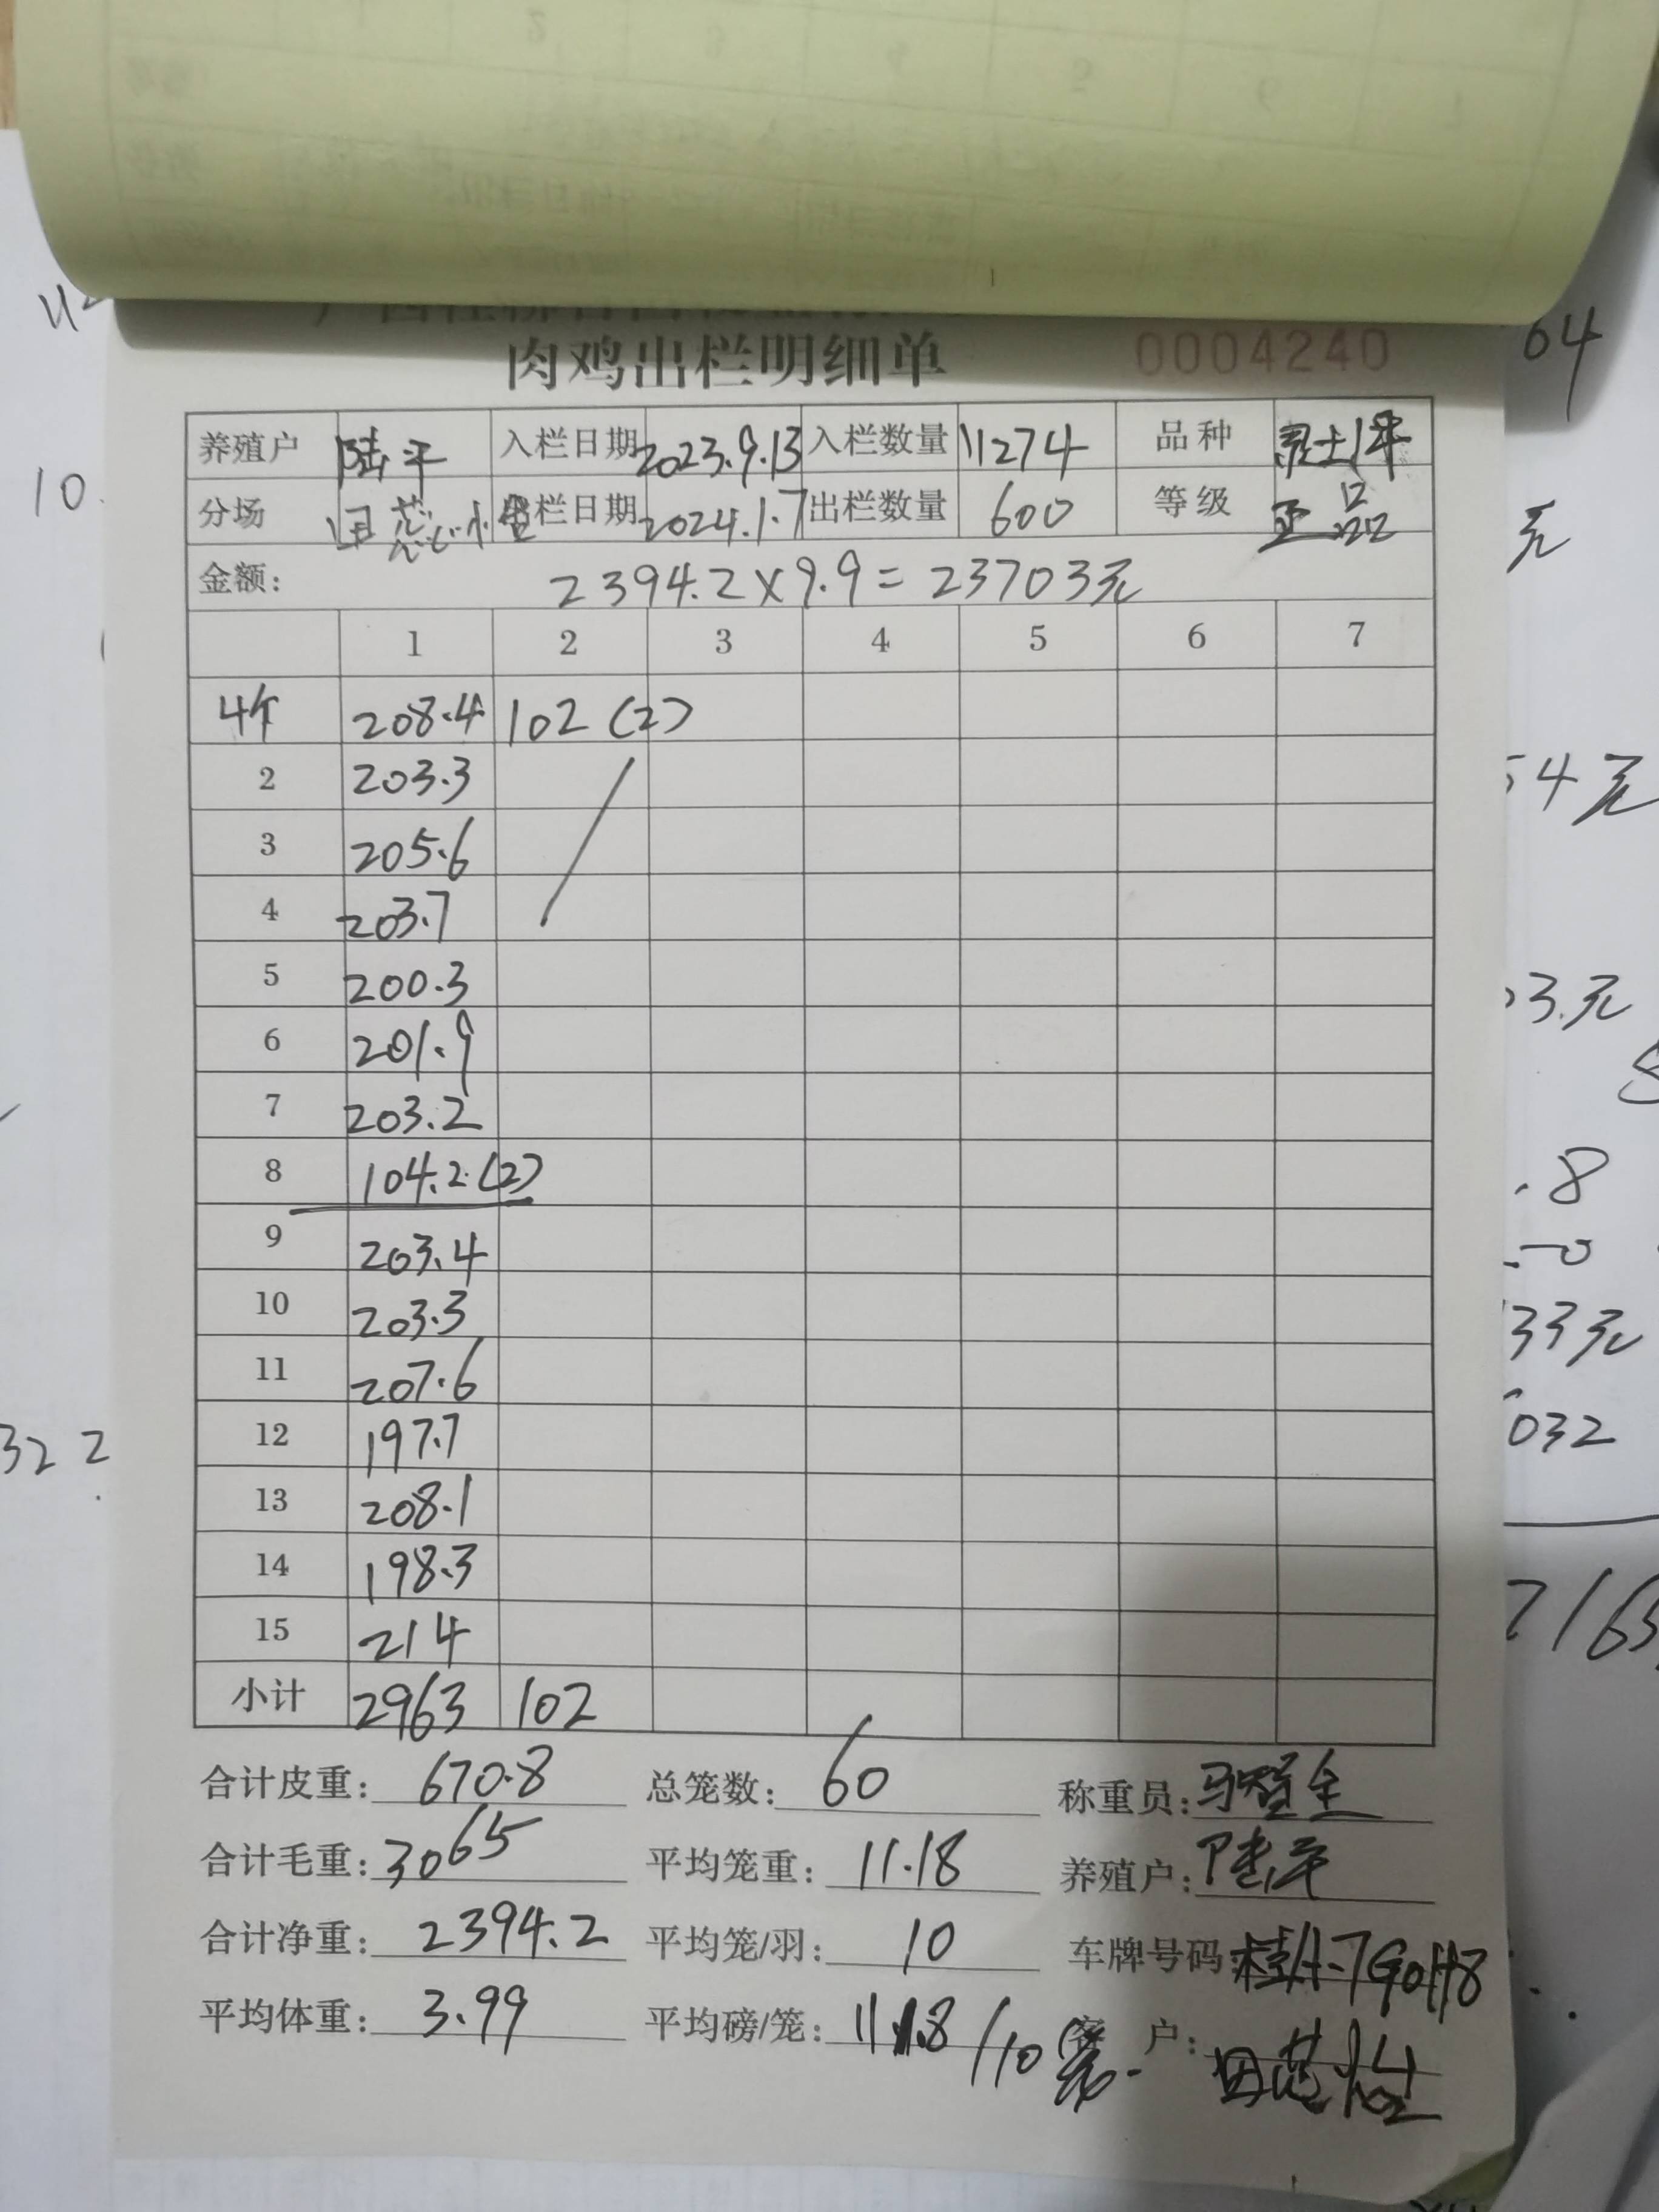 肉鸡出栏明细单 0004240
养殖户 陆平 入栏日期 2023.9.13 入栏数量 11274 品种
分场 栏日期 2024.1.7 出栏数量 600 等级 正品
金额: 2394.2×9.9=23703元
1 2 3 4 5 6 7
4个 208.4 102 (2)
2 203.3
3 205.6
4 203.7
5 200.3
6 201.9
7 203.2
8 104.2.(2)
9 203.4
10 203.3
11 207.6
12 197.7
13 208.1
14 198.3
15 214
小计 2963 102
合计皮重: 670.8 总笼数: 60 称重员:
合计毛重: 3065 平均笼重: 11.18 养殖户: 陆平
合计净重: 2394.2 平均笼/羽: 10 车牌号码:
平均体重: 3.99 平均磅/笼: 11.18 /10 客 户: 田芯
10
322
64
元
54元
03.元
.8
33元
032